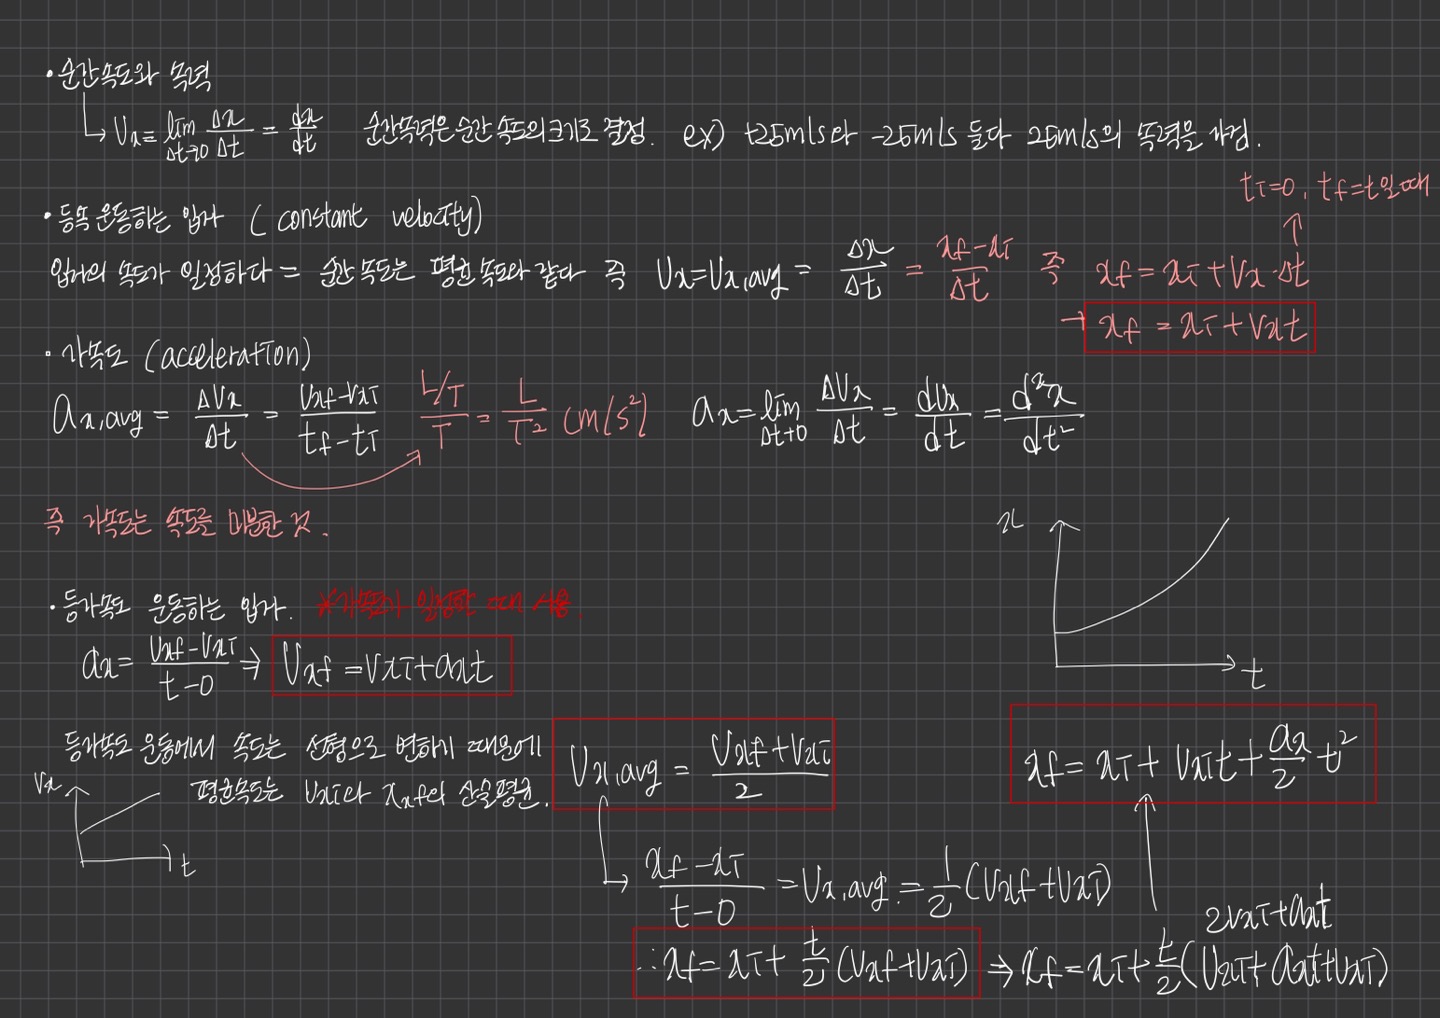 • 순간속도와 속력
↳ Vx ≡ lim Δt→0 Δx/Δt = dx/dt 순간속력은 순간 속도의 크기로 결정. ex) +25m/s와 -25m/s 둘다 25m/s의 속력을 가짐.
tI=0, tf=t일때
• 등속 운동하는 입자 ( constant velocity)
입자의 속도가 일정하다 = 순간 속도는 평균속도와 같다 즉 Vx=Vx,avg = Δx/Δt = (xf-xI)/Δt 즉 xf = xI + Vx·Δt
→ xf = xI + Vxt
• 가속도 (acceleration)
ax,avg = ΔVx/Δt = (Vxf-VxI)/(tf-tI) (L/T)/T = L/T² (m/s²) ax = lim Δt→0 ΔVx/Δt = dVx/dt = d²x/dt²
즉 가속도는 속도를 미분한 것.
x
t
• 등가속도 운동하는 입자. ※가속도가 일정할 때만 사용.
ax = (Vxf-VxI)/(t-0) ⇒ Vxf = VxI + axt
등가속도 운동에서 속도는 선형으로 변하기 때문에
평균속도는 VxI와 Xxf의 산술평균.
Vx
t
Vx,avg = (Vxf+VxI)/2
xf = xI + VxIt + ax/2 t²
↳ (xf-xI)/(t-0) = Vx,avg = 1/2 (Vxf+VxI)
2VxI+axt
∴ xf = xI + t/2 (Vxf+VxI) ⇒ xf = xI + t/2 (VxI + axt + VxI)